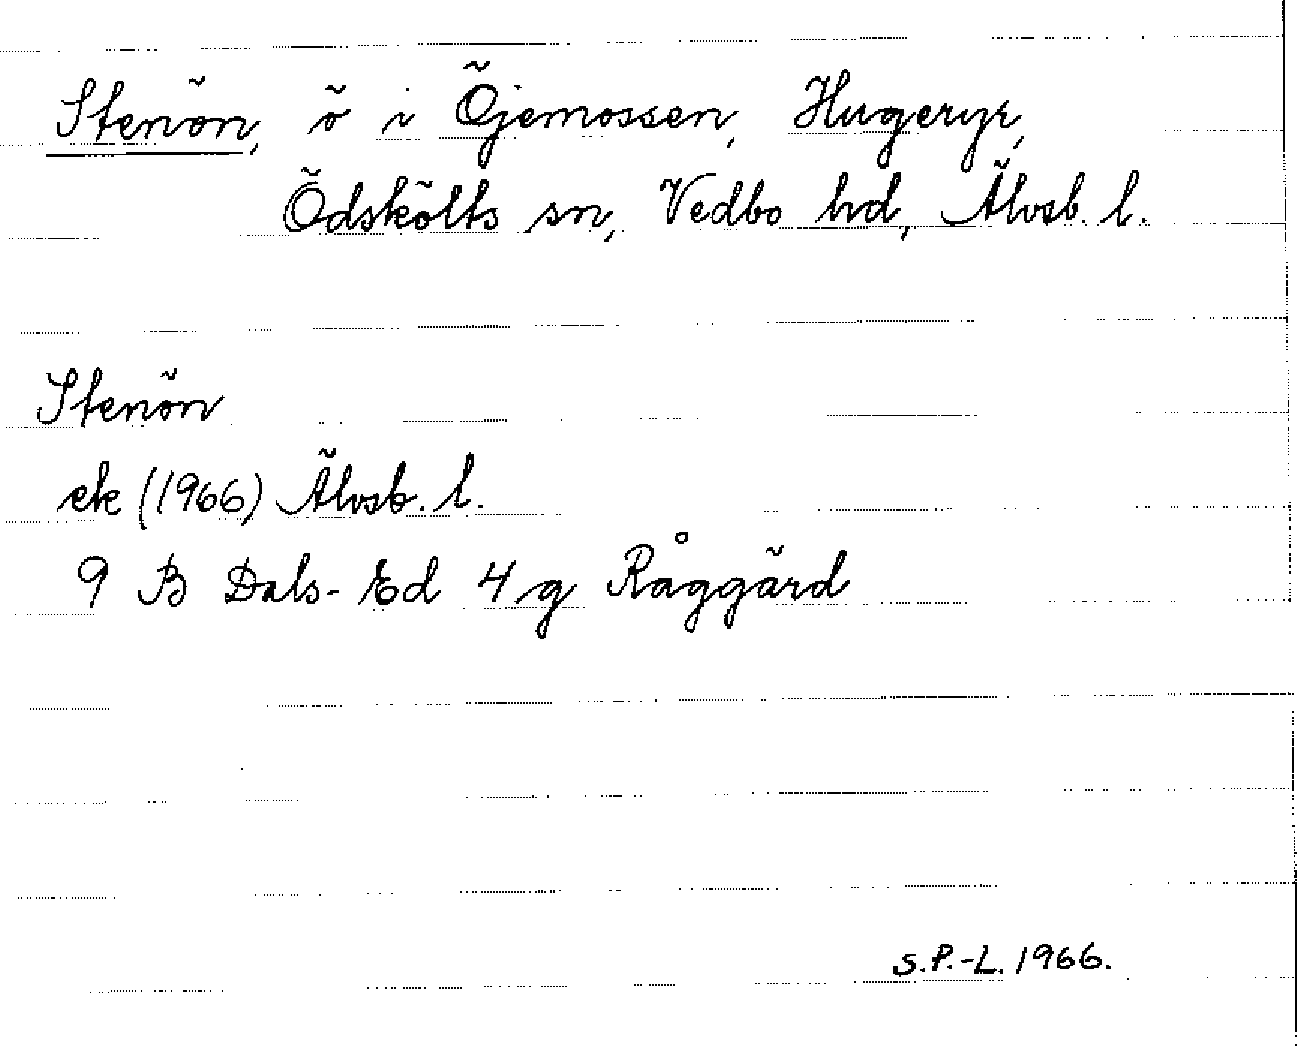 Stenön, ö i Öjemossen, Hugeryr,
Ödskölts sn, Vedbo hd, Älvsb. l.
Stenön
ek (1966) Älvsb. l.
9 B Dals-Ed 4 g Råggärd
S.P.-L. 1966.